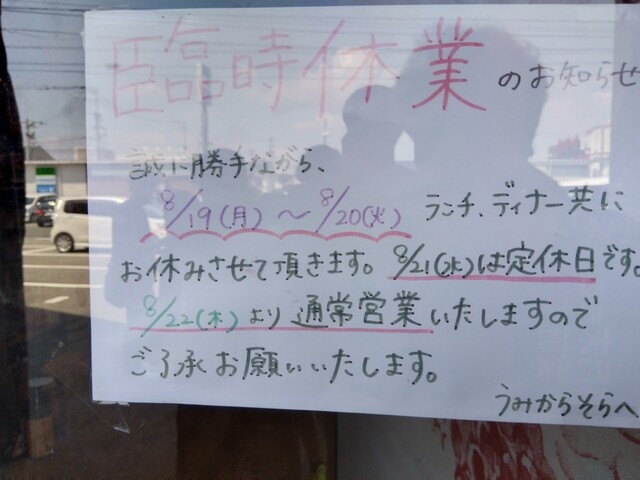 臨時休業のお知らせ
誠に勝手ながら、
8/19(月)～8/20(火) ランチ、ディナー共に
お休みさせて頂きます。8/21(水)は定休日です。
8/22(木)より通常営業いたしますので
ご了承お願いいたします。
うみからそらへ